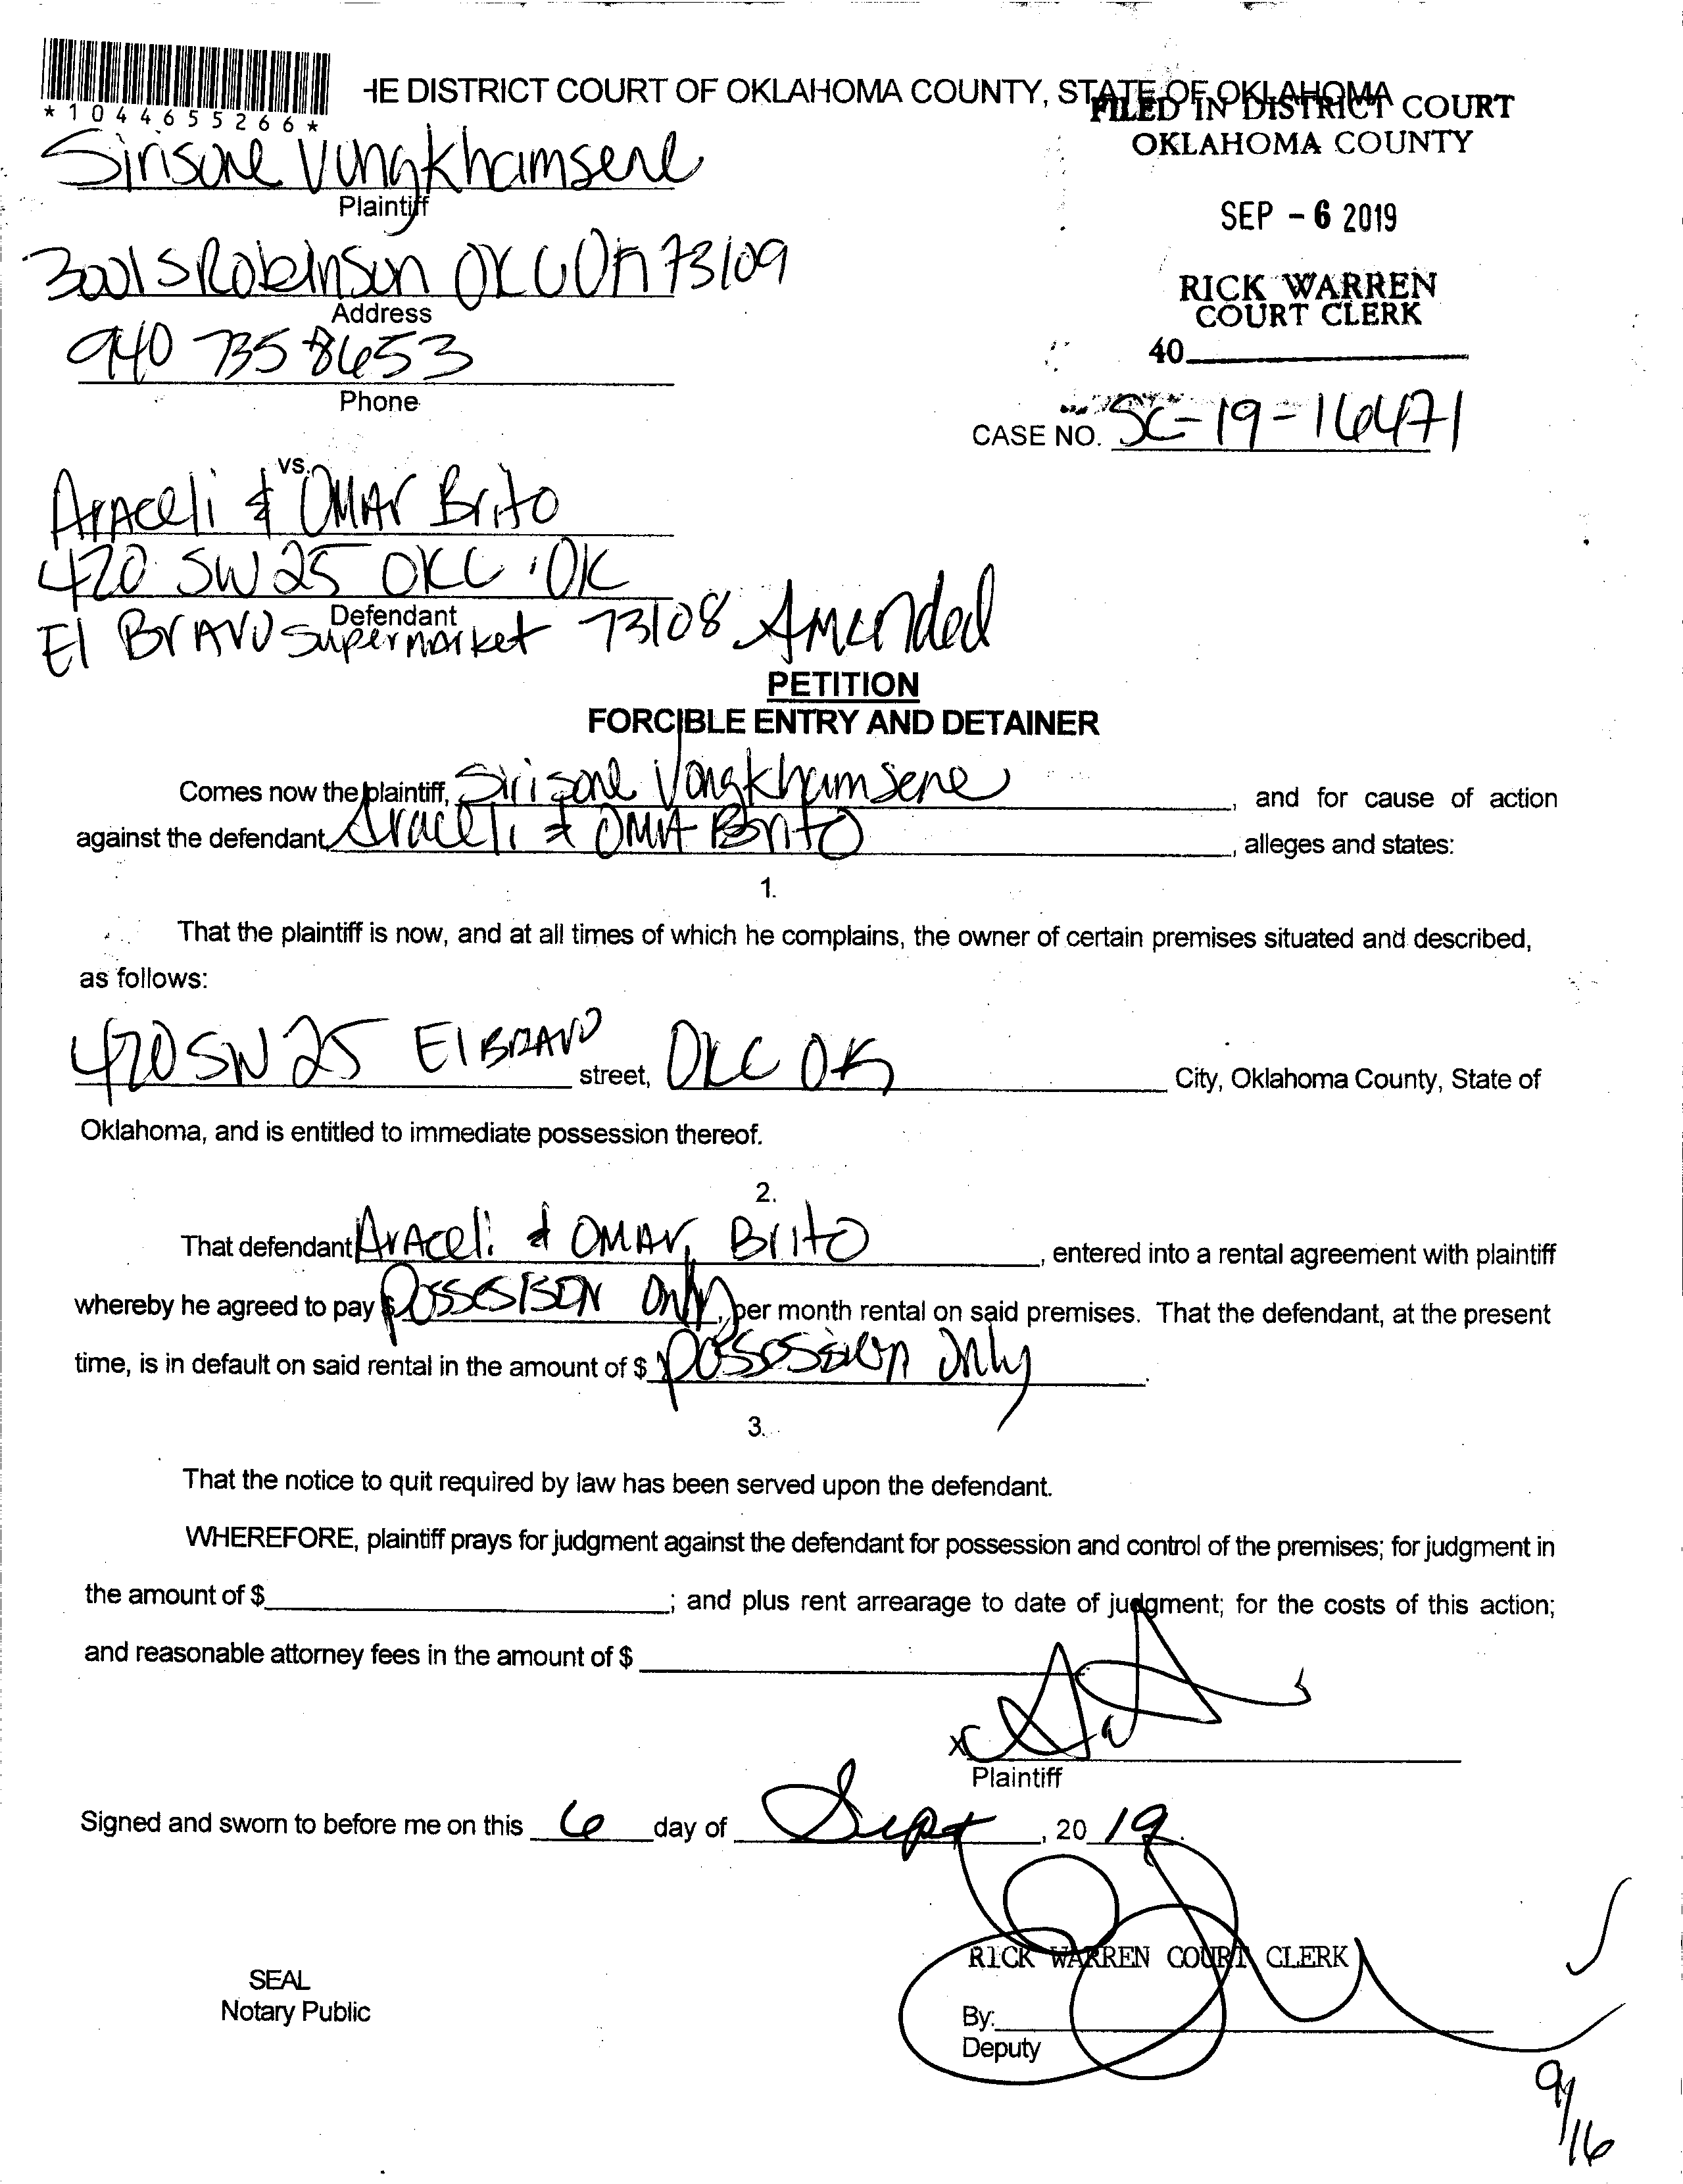 *1044655266*
HE DISTRICT COURT OF OKLAHOMA COUNTY, STATE OF OKLAHOMA
FILED IN DISTRICT COURT
OKLAHOMA COUNTY
SEP - 6 2019
RICK WARREN
COURT CLERK
40
Sirisone Vongkhamsene
Plaintiff
3001 S Robinson OKC OK 73109
Address
940 735 8653
Phone
CASE NO. SC-19-16471
vs.
Araceli & OMAr Brito
420 SW 25 OKC OK
Defendant
El BrAvo Supermarket 73108 Amended
PETITION
FORCIBLE ENTRY AND DETAINER
Comes now the plaintiff, Sirisone Vongkhamsene, and for cause of action
against the defendant, Araceli & OMA Brito, alleges and states:
1.
That the plaintiff is now, and at all times of which he complains, the owner of certain premises situated and described,
as follows:
420 SW 25 El BRAVO street, OKC OK City, Oklahoma County, State of
Oklahoma, and is entitled to immediate possession thereof.
2.
That defendant ArAceli & OMAr Brito, entered into a rental agreement with plaintiff
whereby he agreed to pay $ POSSESISON Only, per month rental on said premises. That the defendant, at the present
time, is in default on said rental in the amount of $ possession only.
3.
That the notice to quit required by law has been served upon the defendant.
WHEREFORE, plaintiff prays for judgment against the defendant for possession and control of the premises; for judgment in
the amount of $ ; and plus rent arrearage to date of judgment; for the costs of this action;
and reasonable attorney fees in the amount of $
x
Plaintiff
Signed and sworn to before me on this 6 day of Sept, 20 19.
RICK WARREN COURT CLERK
SEAL
Notary Public
By:
Deputy
9/16